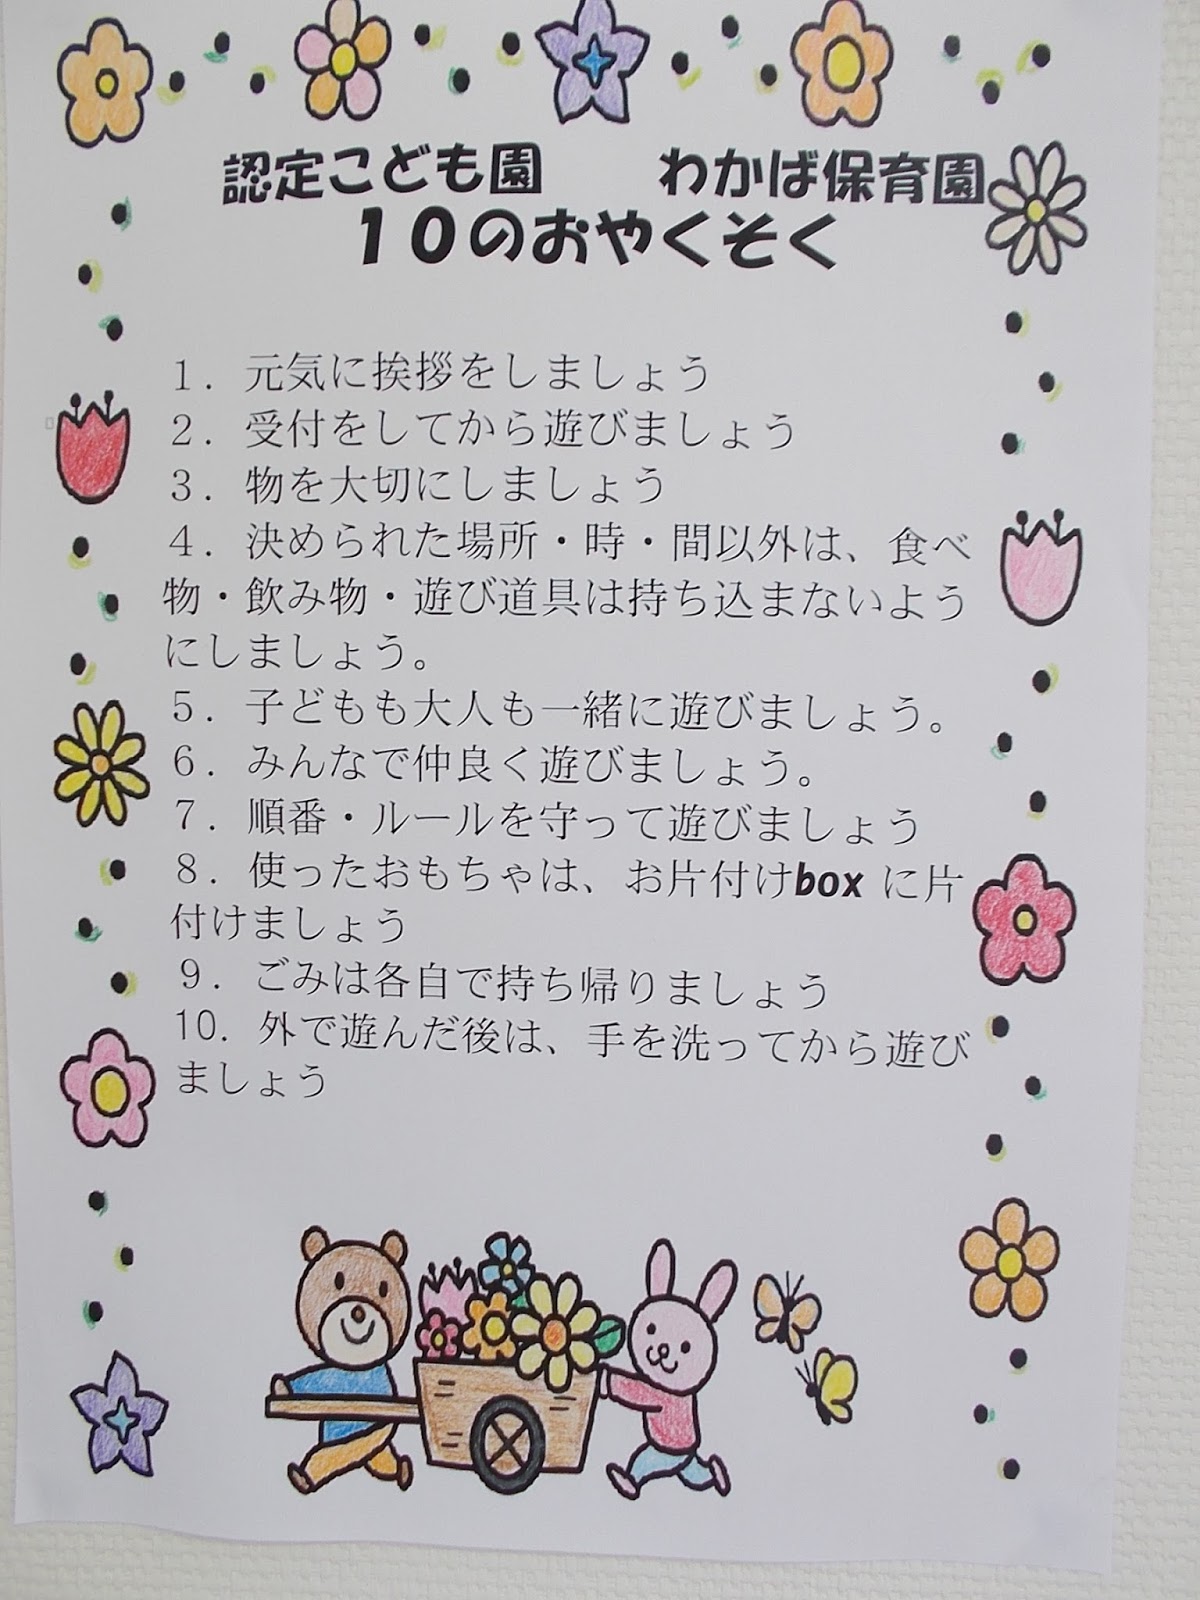 認定こども園　　わかば保育園
１０のおやくそく
１．元気に挨拶をしましょう
２．受付をしてから遊びましょう
３．物を大切にしましょう
４．決められた場所・時・間以外は、食べ
物・飲み物・遊び道具は持ち込まないよう
にしましょう。
５．子どもも大人も一緒に遊びましょう。
６．みんなで仲良く遊びましょう。
７．順番・ルールを守って遊びましょう
８．使ったおもちゃは、お片付けbox に片
付けましょう
９．ごみは各自で持ち帰りましょう
10．外で遊んだ後は、手を洗ってから遊び
ましょう